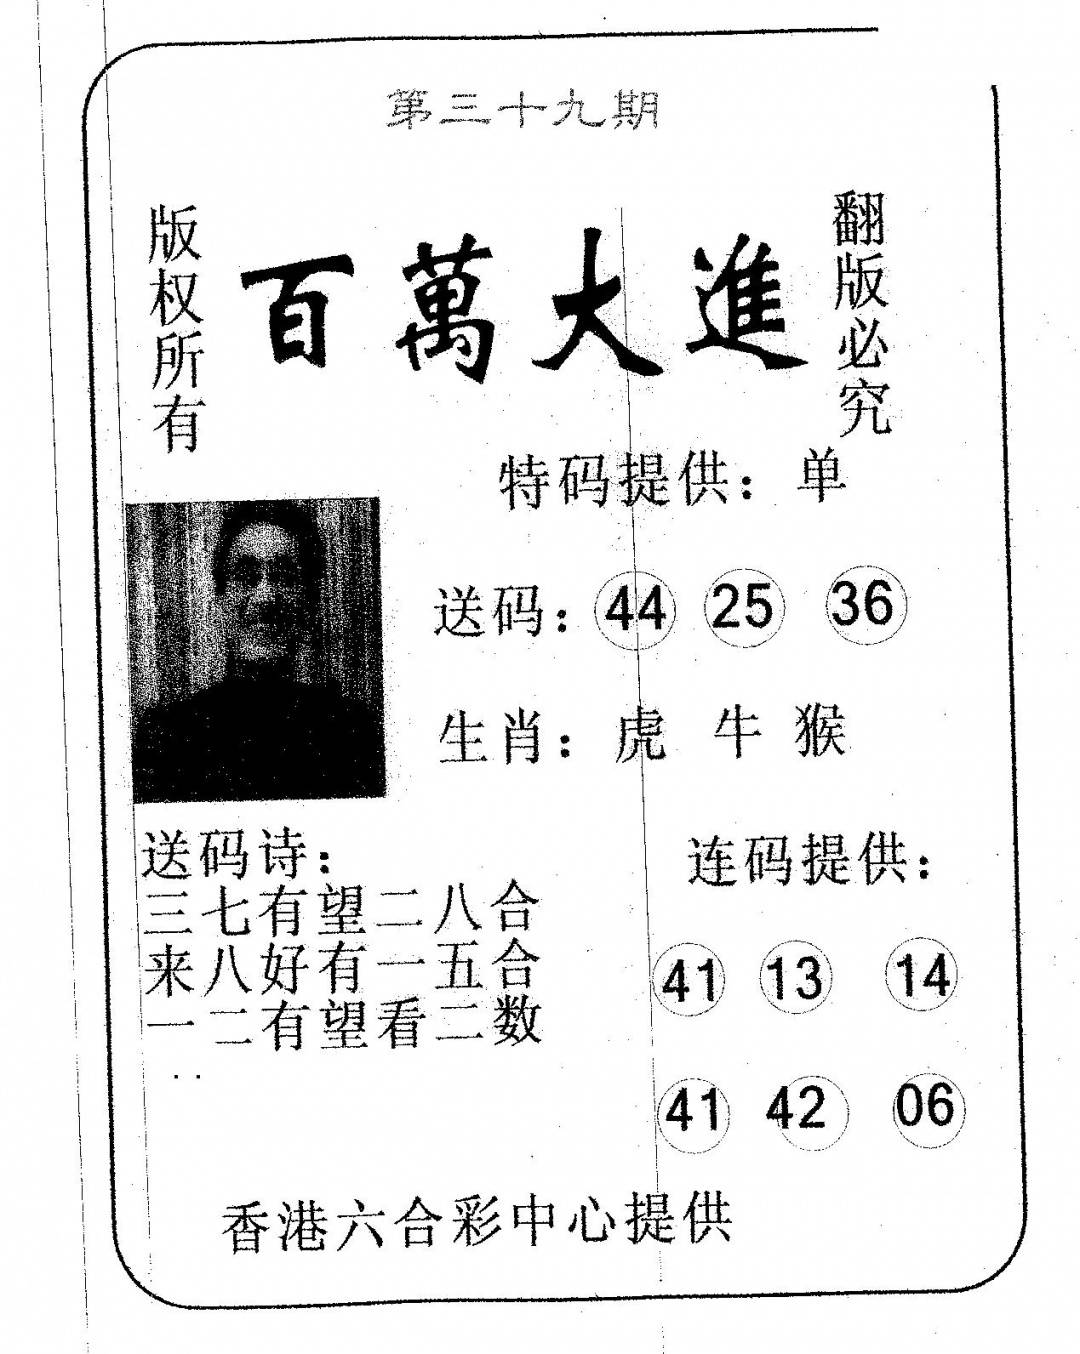 第三十九期
版权所有
百萬大進
翻版必究
特码提供：单
送码：44 25 36
生肖：虎 牛 猴
送码诗：
三七有望二八合
来八好有一五合
一二有望看二数
..
连码提供：
41 13 14
41 42 06
香港六合彩中心提供